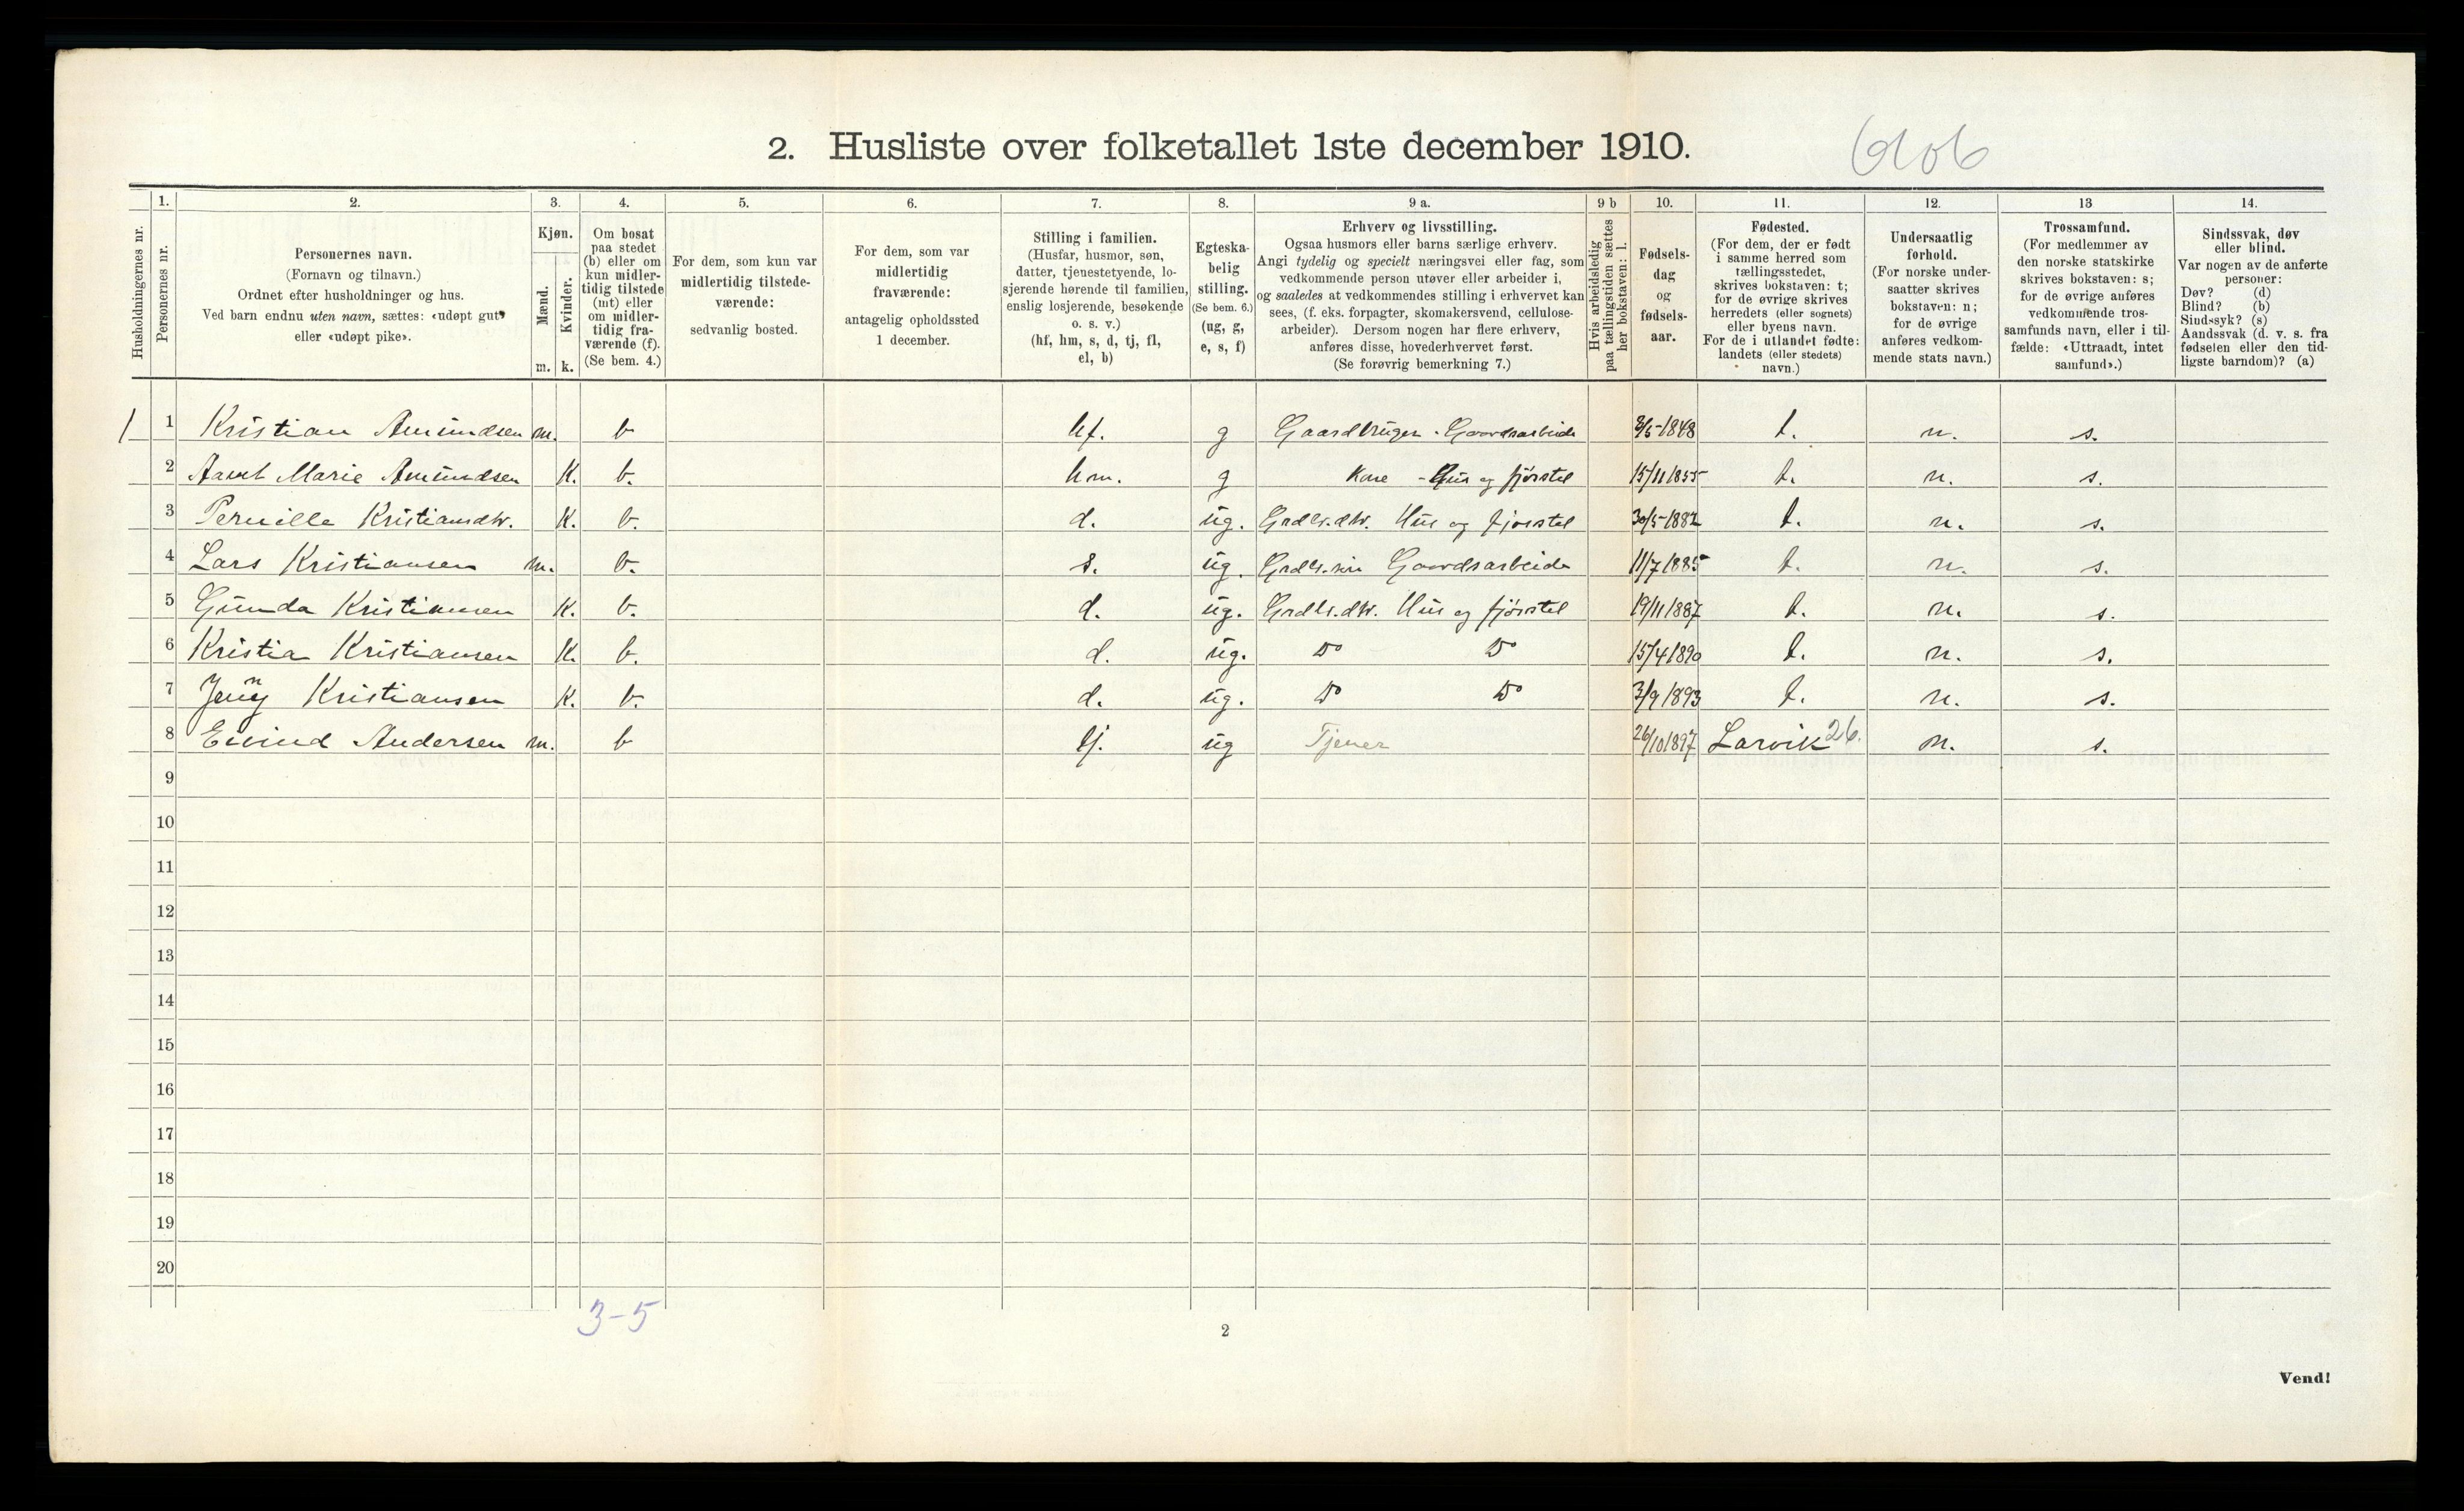 2. Husliste over folketallet 1ste december 1910.
6106
1. 2. 3. 4. 5. 6. 7. 8. 9 a. 9 b 10. 11. 12. 13 14.
Husholdningernes nr.
Personernes nr.
Personernes navn.
(Fornavn og tilnavn.)
Ordnet efter husholdninger og hus.
Ved barn endnu uten navn, sættes: «udøpt gut»
eller «udøpt pike».
Kjøn.
Mænd.
Kvinder.
m. k.
Om bosat
paa stedet
(b) eller om
kun midler-
tidig tilstede
(mt) eller
om midler-
tidig fra-
værende (f).
(Se bem. 4.)
For dem, som kun var
midlertidig tilstede-
værende:
sedvanlig bosted.
For dem, som var
midlertidig
fraværende:
antagelig opholdssted
1 december.
Stilling i familien.
(Husfar, husmor, søn,
datter, tjenestetyende, lo-
sjerende hørende til familien,
enslig losjerende, besøkende
o. s. v.)
(hf, hm, s, d, tj, fl,
el, b)
Egteska-
belig
stilling.
(Se bem. 6.)
(ug, g,
e, s, f)
Erhverv og livsstilling.
Ogsaa husmors eller barns særlige erhverv.
Angi tydelig og specielt næringsvei eller fag, som
vedkommende person utøver eller arbeider i,
og saaledes at vedkommendes stilling i erhvervet kan
sees, (f. eks. forpagter, skomakersvend, cellulose-
arbeider). Dersom nogen har flere erhverv,
anføres disse, hovederhvervet først.
(Se forøvrig bemerkning 7.)
Hvis arbeidsledig
paa tællingstiden sættes
her bokstaven: l.
Fødsels-
dag
og
fødsels-
aar.
Fødested.
(For dem, der er født
i samme herred som
tællingsstedet,
skrives bokstaven: t;
for de øvrige skrives
herredets (eller sognets)
eller byens navn.
For de i utlandet fødte:
landets (eller stedets)
navn.)
Undersaatlig
forhold.
(For norske under-
saatter skrives
bokstaven: n;
for de øvrige
anføres vedkom-
mende stats navn.)
Trossamfund.
(For medlemmer av
den norske statskirke
skrives bokstaven: s;
for de øvrige anføres
vedkommende tros-
samfunds navn, eller i til-
fælde: «Uttraadt, intet
samfund».)
Sindssvak, døv
eller blind.
Var nogen av de anførte
personer:
Døv? (d)
Blind? (b)
Sindssyk? (s)
Aandssvak (d. v. s. fra
fødselen eller den tid-
ligste barndom)? (a)
1 1 Kristian Amundsen m. b hf. g Gaardbruger - Gaardsarbeide 3/5-1848 t. n. s.
2 Marie Amundsen K. b. hm. g Kone - Hus og fjørstel 15/11 1855 t. n. s.
3 Pernille Kristiansdtr. K. b. d. ug. Grdbr.dtr. Hus og fjørstel 30/5-1882 t. n. s.
4 Lars Kristiansen m. b. s. ug. Grdbr.søn Gaardsarbeide 11/7 1885 t. n. s.
5 Gunda Kristiansen K. b. d. ug. Grdbr.dtr. Hus og fjørstel 19/11 1887 t. n. s.
6 Kristia Kristiansen K. b. d. ug. Do Do 15/4 1890 t. n. s.
7 Jenny Kristiansen K. b. d. ug. Do Do 3/9 1893 t. n. s.
8 Eivind Andersen m. b tj. ug Tjener 26/10 1897 Larvik 26. n. s.
9
10
11
12
13
14
15
16
17
18
19
20
3-5
2
Vend!